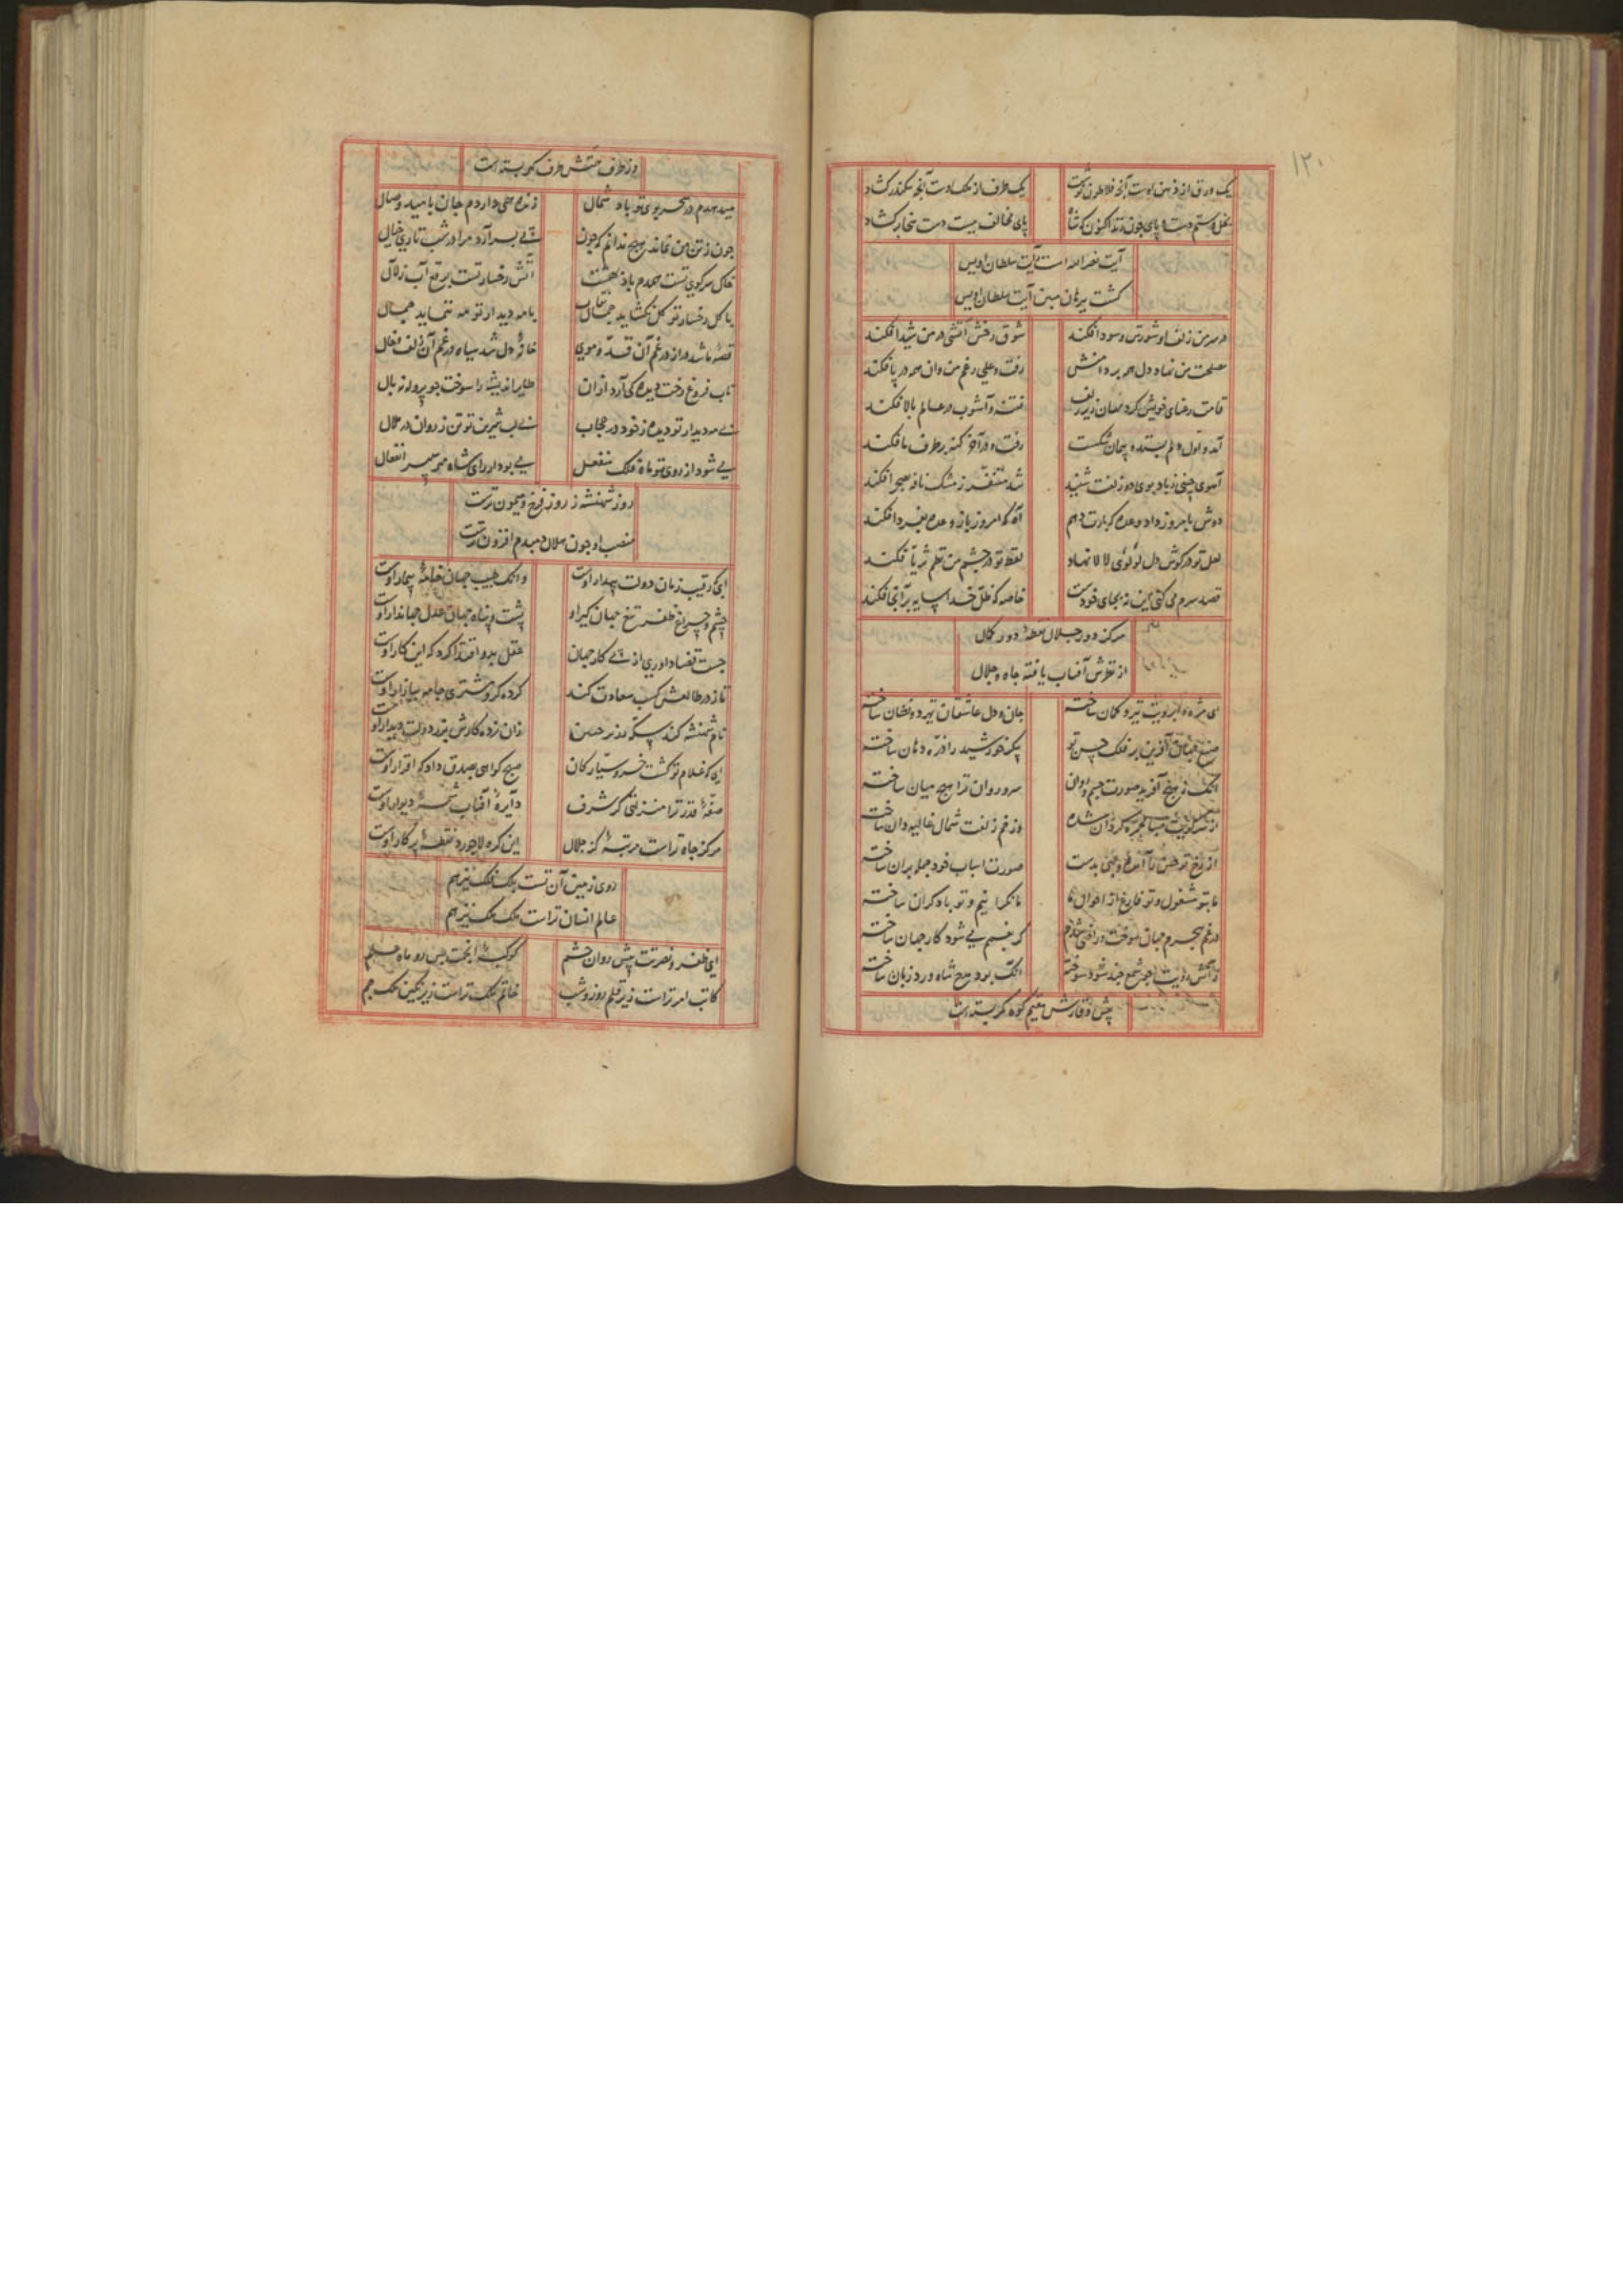 ۱۲۰
یک ورق از ذهن اوست آنچه فلاطون نوشت یک طرف از ملک اوست آنچه سکندر کشاد
پای مخالف ببست دست سخا برکشاد
آیت نصر الله است رایت سلطان اویس
کشت ببرهان مبین آیت سلطان اویس
در سر من زلف او شورش و سودا فکند شوق رخش آتشی در من شیدا فکند
رفت و علی رغم من وان همه در پا فکند
قامت رعنای خویش کرد نهان زیر زلف فتنه و آشوب در عالم بالا فکند
آمد و اول دلم بستد و پیمان شکست رفت و در آخر کنه بر طرف ما فکند
آهوی چینی ز باد بوی دو زلفت شنید شد متنفر ز مشک نافه بصحرا فکند
دوش بامروز داد وعده که بارت دهم آه که امروز باز وعده بفردا فکند
لعل تو در کوش دل لؤلؤی لالا نهاد لفظ تو در چشم من نظم ثریا فکند
قصد سرم می کنی این نه بجای خودست خاصه که ظل خدا سایه بر آنجا فکند
مرکز دور جلال نقطهٔ دور کمال
از نظرش آفتاب یافته جاه و جلال
ای مژه و ابرویت تیر و کمان ساخته جان و دل عاشقان تیر و نشان ساخته
صنع جهان آفرین بر فلک حسن تو پیکر خورشید را ذره دهان ساخته
آنک ز هیچ آفرید صورت جسم و روان سرو روان ترا هیچ میان ساخته
وز خم زلفت شمال غالیه دان ساخته
صورت اسباب خود جمله بران ساخته
ما بتو مشغول و تو فارغ از احوال ما ما نکرانیم و تو با دکران ساخته
در غم هجرم جهان سوخت و راضی شدم کر بغمم می شود کار جهان ساخته
ز آتش رویت چو شمع چند شود سوخته آنک بود مدح شاه ورد زبان ساخته
پیش وقارش مقیم کوه کمر بسته است
وز طرف منتش طرف کمر بسته است
میدهدم در سحر بوی تو باد شمال زنده همی داردم جان بامید وصال
چون ز تن من نماند هیچ ندانم که چون پی بسر آرد مرا در شب تاری خیال
خاک سر کوی تست همدم باد بهشت آتش رخسار تست برقع آب زلال
با کل رخسار تو کل نکشاید نقاب با مه دیدار تو مه ننماید جمال
قصهٔ ما شد دراز در غم آن قد و موی خانهٔ دل شد سیاه در غم آن زلف و خال
تاب فروغ رخت دیده کی آرد از ان طایر اندیشه را سوخت چو پروانه بال
بی مه دیدار تو دیده ز خود در حجاب بی لب شیرین تو تن ز روان در ملال
می شود از روی تو ماه فلک منفعل
روز شهنشه ز روز فرخ و میمون ترست
منصب او چون هلال دمبدم افزون ترست
ای که رقیب زمان دولت بیدار اوست وانک طبیب جهان خامهٔ بیمار اوست
چشم و چراغ ظفر تیغ جهان کیر او پشت و پناه جهان عدل جهاندار اوست
جست قضا داوری از پی کار جهان عقل بدو اقتدا کرد که این کار اوست
تا ز در طالعش کسب سعادت کند کرده کرو مشتری جامه ببازار اوست
ای که غلام تو کشت خسرو سیارکان صبح کواهی بصدق داد که اقرار اوست
صفهٔ قدر ترا منزلتی کز شرف دایرهٔ آفتاب شمسهٔ دیوار اوست
مرکز جاه تراست مرتبهٔ کز جلال این کره لاجورد نقطهٔ پرکار اوست
روی زمین آن تست بلک فلک نیز هم
عالم انسان تراست ملک ملک نیز هم
ای ظفر و نصرتت پیش روان حشم
کاتب امر تراست زیر قلم روز و شب خاتم ملک تراست زیر نکین ملک جم